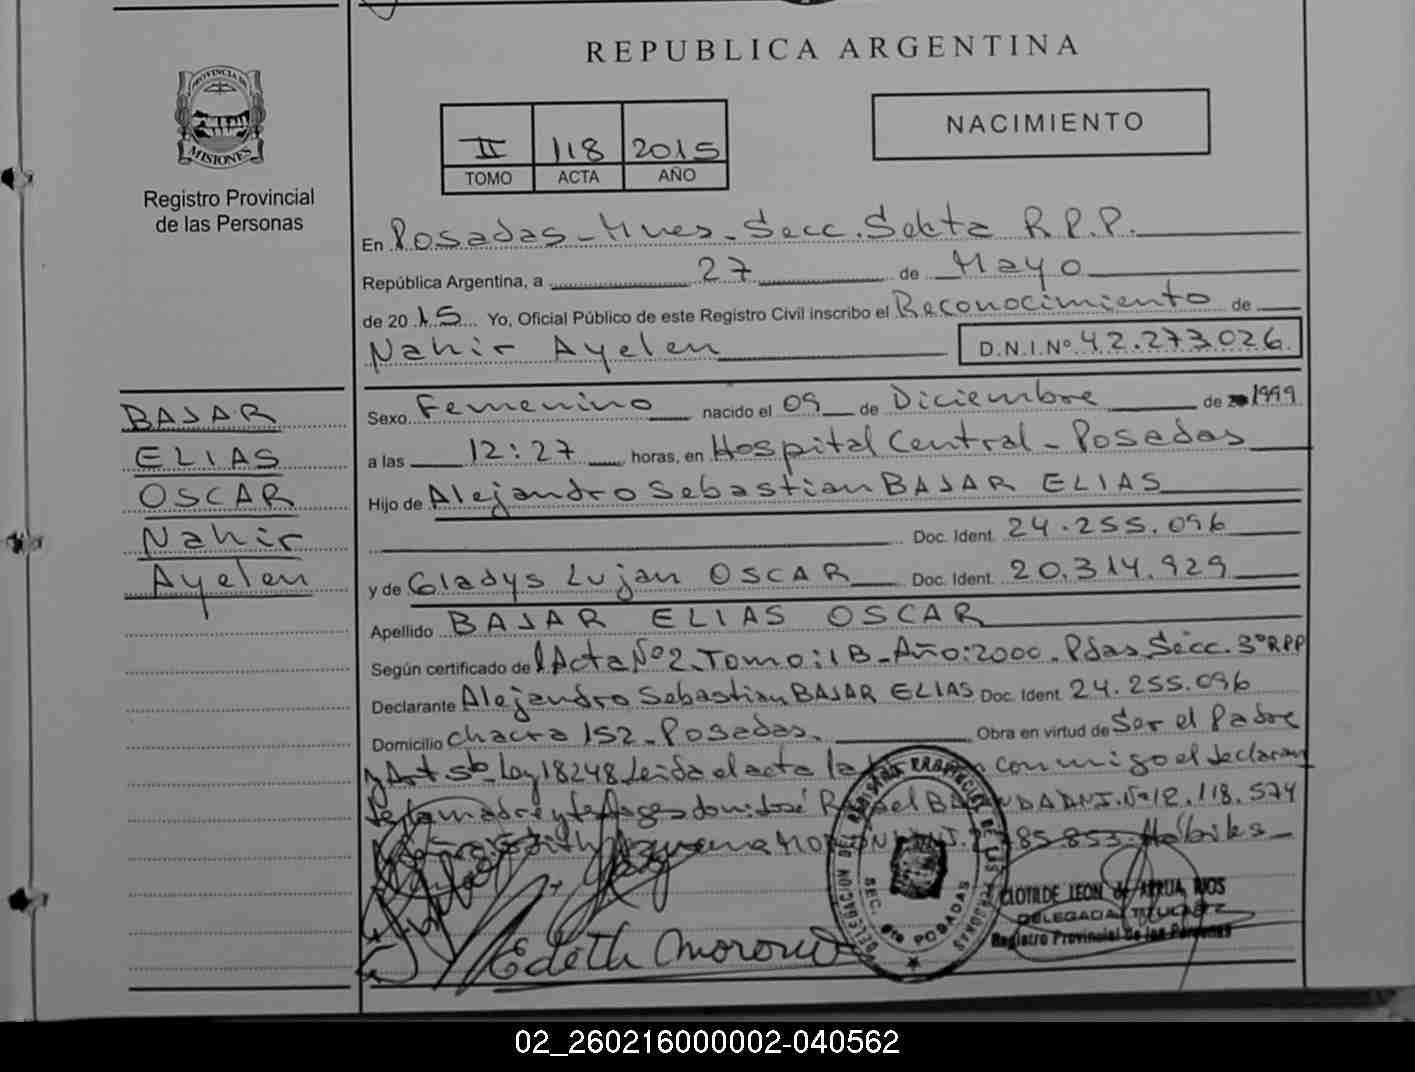 REPUBLICA ARGENTINA
PROVINCIA DE
MISIONES
Registro Provincial
de las Personas
II 118 2015
TOMO ACTA AÑO
NACIMIENTO
En Posadas - Mnes - Secc. Sexta R.P.P.
República Argentina, a 27 de Mayo
de 2015 Yo, Oficial Público de este Registro Civil inscribo el Reconocimiento de
Nahir Ayelen D.N.I.Nº 42.273.026
BAJAR
ELIAS
OSCAR
Nahir
Ayelen
Sexo Femenino nacido el 09 de Diciembre de 1999
a las 12:27 horas, en Hospital Central - Posadas
Hijo de Alejandro Sebastian BAJAR ELIAS
Doc. Ident. 24.255.096
y de Gladys Lujan OSCAR Doc. Ident. 20.314.929
Apellido BAJAR ELIAS OSCAR
Según certificado de Acta Nº 2 - Tomo: 1 B - Año: 2000 - Pdas Secc. 3º RPP
Declarante Alejandro Sebastian BAJAR ELIAS Doc. Ident. 24.255.096
Domicilio Chacra 152 - Posadas. Obra en virtud de Ser el Padre
y Art 5b Ley 18248 Leida el acta la conmigo el declaran
te la madre y testigos don: José DNI. Nº 12.118.574
85.853 Hábiles
Edith
DELEGACION DEL REGISTRO PROVINCIAL DE LAS PERSONAS
SEC. 6ta POSADAS
CLOTILDE LEON de ARRUA RIOS
DELEGADA TITULAR
Registro Provincial de las Personas
02_260216000002-040562